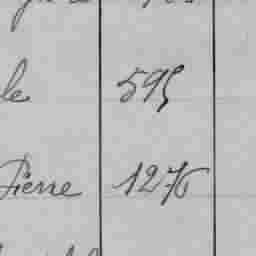 le 595
Pierre 1276